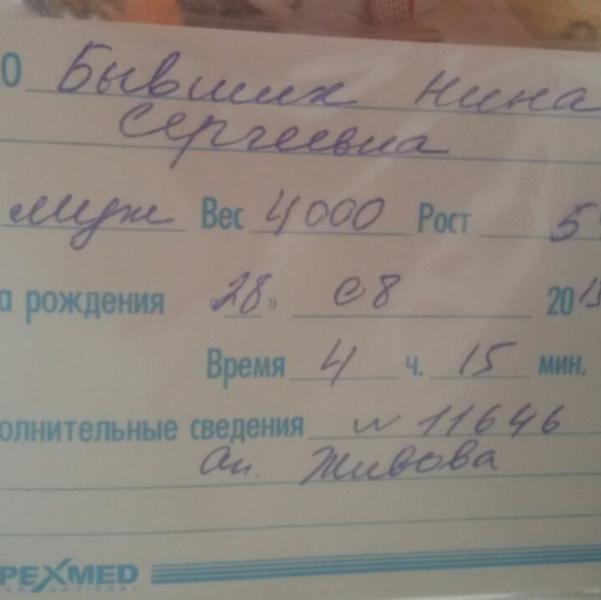 О Бывших Нина
Сергеевна
муж Вес 4000 Рост 5
а рождения «28» 08 201
Время 4 ч. 15 мин.
олнительные сведения № 11646
Ак. Живова
PEXMED